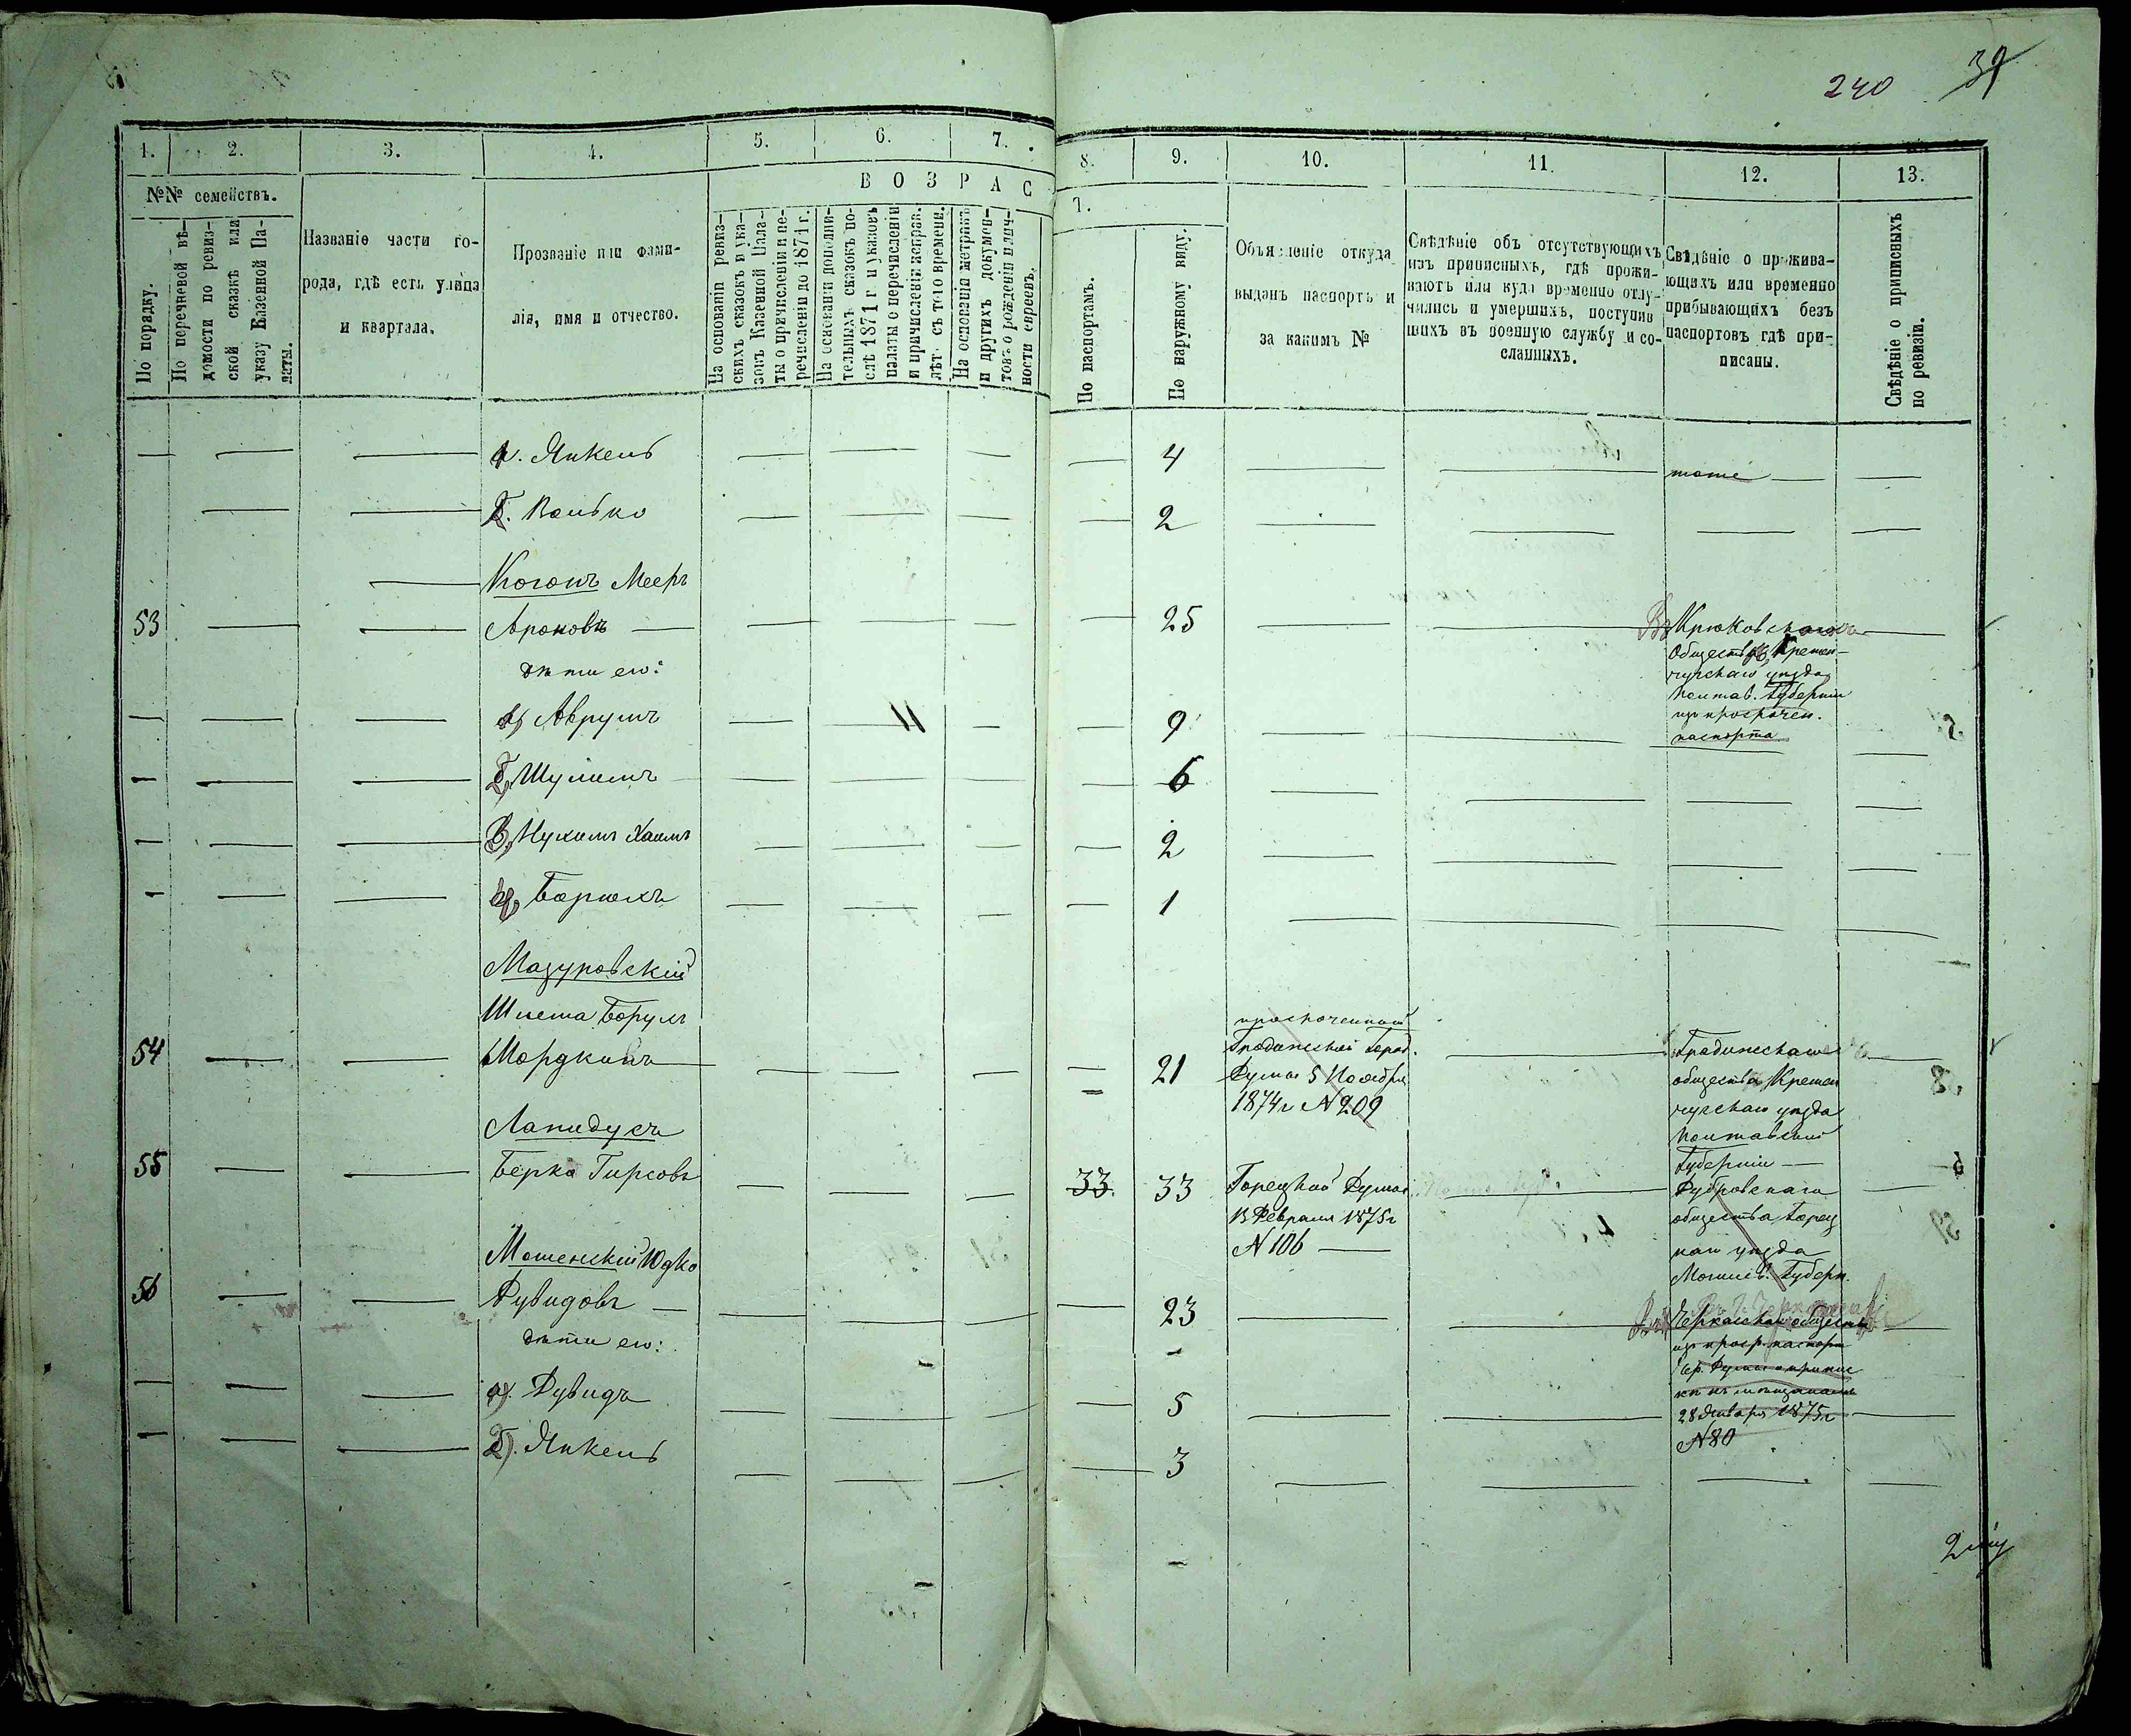 240 39
1. 2. 3. 4. 5. 6. 7.
№№ семействъ.
По порядку.
По перечневой вѣ-
домости по ревиз-
ской сказкѣ или
указу Казенной Па-
латы.
Названіе части го-
рода, гдѣ есть улица
и квартала.
Прозваніе или фами-
лія, имя и отчество.
ВОЗРАС
На основаніи ревиз-
скихъ сказокъ и ука-
зовъ Казенной Пала-
ты о причисленіи и пе-
речисленіи до 1871 г.
На основаніи дополни-
тельныхъ сказокъ по-
слѣ 1871 г. и указовъ
палаты о перечисленіи
и причисленіи исправ.
лѣтъ съ того времени.
На основаніи метрикъ
и другихъ докумен-
товъ о рожденіи и лич-
ности евреевъ.
8. 9. 10. 11. 12. 13.
7.
По паспортамъ.
По наружному виду.
Объясненіе откуда
выданъ паспортъ и
за какимъ №
Свѣдѣніе объ отсутствующихъ
изъ приписныхъ, гдѣ прожи-
ваютъ или куда временно отлу-
чились и умершихъ, поступив
шихъ въ военную службу и со-
сланныхъ.
Свѣдѣніе о прожива-
ющихъ или временно
прибывающихъ безъ
паспортовъ гдѣ при-
писаны.
Свѣдѣніе о приписныхъ
по ревизіи.
а. Янкель 4 тоже
Б. Волько 2
Когонъ Мееръ
53 Ароновъ 25
дѣти его:
а) Аврумъ 11 9
Крюковскаго
Общества Кремен-
чугскаго уѣзда
Полтав. Губерніи
из просрочен.
паспорта
Б, Шулимъ 6
В, Нухимъ Хаимъ 2
Борюхъ 1
Мазуровскій
Шлема Борухъ
54 Мордковъ 21
просроченный
Градижской Город.
Думы 5 Ноября
1874 г. № 209
Градижскаго
общества Кремен
чугскаго уѣзда
Полтавской
Губерніи
Лапидусъ
55 Берка Гирсовъ 33. 33
Горецкой Думы
13 Февраля 1875 г
№ 106
Дубровскаго
общества, Горец
каго уѣзда
Могилев. Губерн.
Мошенскій Юдко
56 Дувидовъ 23
дѣти его:
Черкаскаго общества
из проср. паспорта
28 Января 1875 г
№ 80
а). Дувидъ 5
Б). Янкель 3